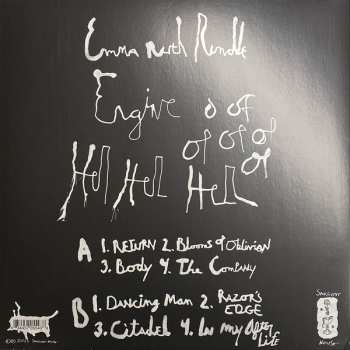 Emma Ruth Rundle
Engine of
of of of of
Hel Hell Hell
A 1. RETURN 2. Blooms of Oblivion
3. Body 4. The Company
B 1. Dancing Man 2. RAZOR'S EDGE
3. Citadel 4. In my After Life
SARGENT
HOUSE